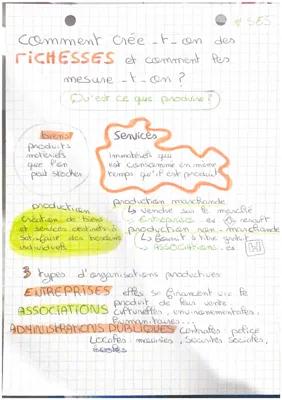 # SES
Comment crée-t-on des
RICHESSES et comment les
mesure-t-on ?
Qu'est ce que produire ?
biens
produits
matériels
que l'on
peut stocker
Services
Immatériels qui
est consommé en même
temps qu'il est produit
production
création de biens
et services destinés à
satisfaire des besoins
individuels
production marchande
↳ vendre sur le marché
ENTREPRISES ex
production non-marchande
↳ fournit à titre gratuit
↳ ASSOCIATIONS ex
3 types d'organisations productives
ENTREPRISES elles se financent via le
produit de leur vente
ASSOCIATIONS culturelles, environnementales,
humanitaires...
ADMINISTRATIONS PUBLIQUES centrales police
Locales: mairies, Sociétés Sociales,